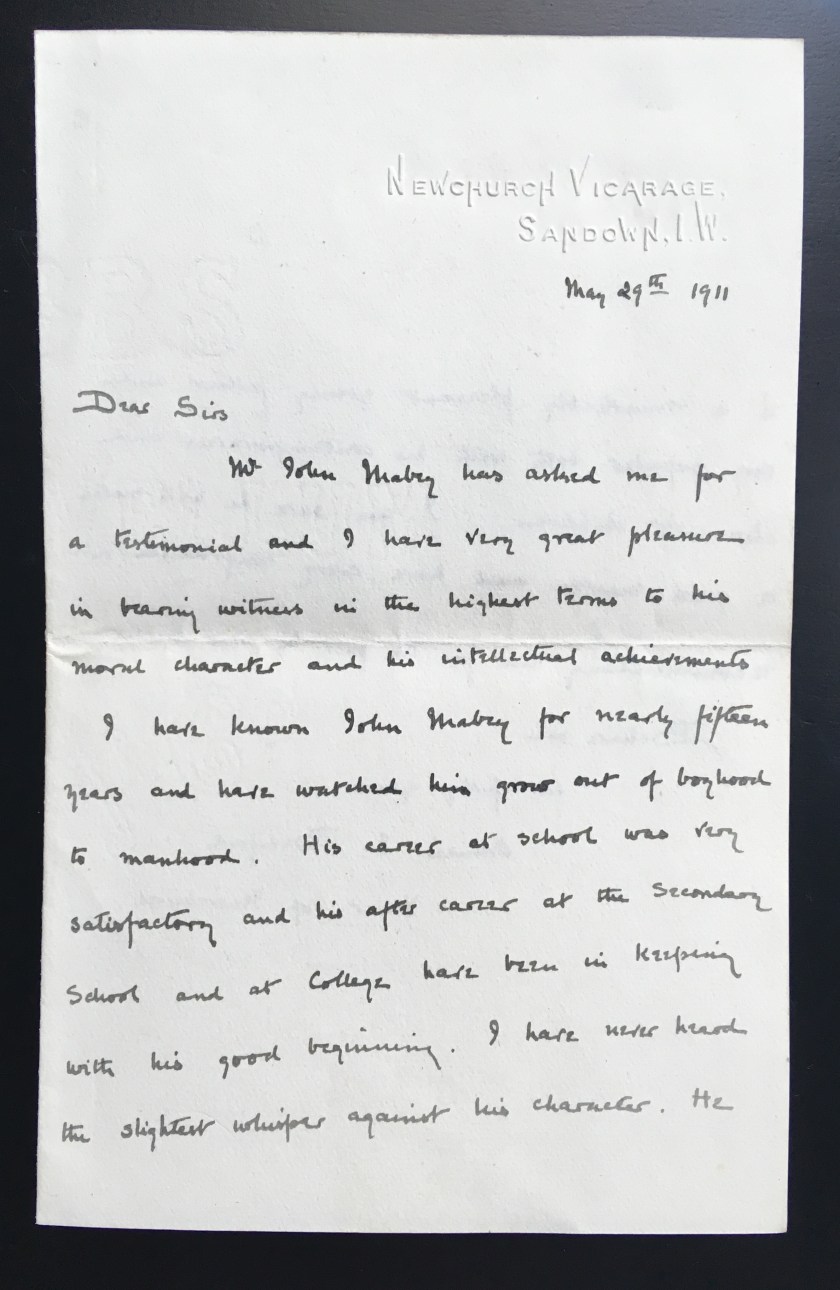 NEWCHURCH VICARAGE.
SANDOWN, I.W.
May 29th 1911
Dear Sirs
Mr John Mabey has asked me for
a testimonial and I have very great pleasure
in bearing witness in the highest terms to his
moral character and his intellectual achievements
I have known John Mabey for nearly fifteen
years and have watched him grow out of boyhood
to manhood. His career at school was very
satisfactory and his after career at the Secondary
School and at College have been in keeping
with his good beginning. I have never heard
the slightest whisper against his character. He